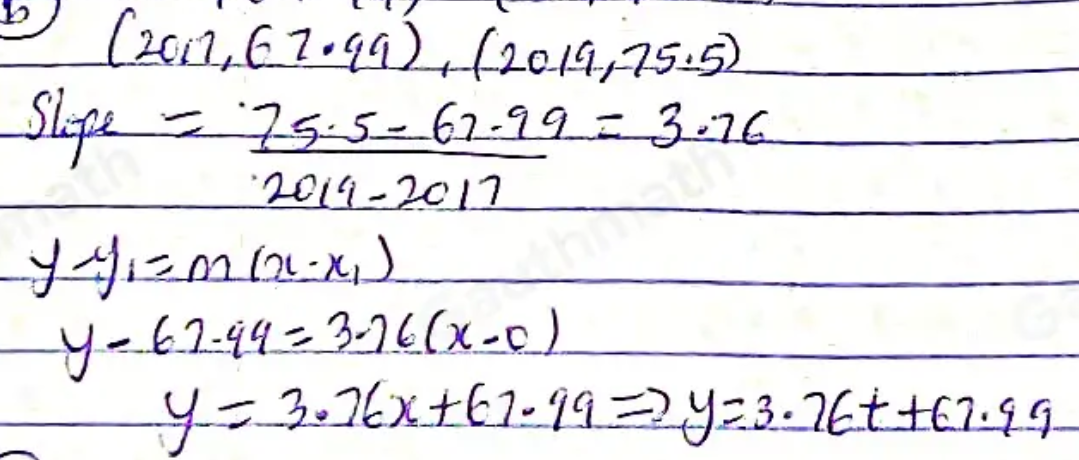 b)
(2017, 67.99), (2019, 75.5)
Slope = 75.5 - 67.99 = 3.76
2019 - 2017
y - y₁ = m(x - x₁)
y - 67.99 = 3.76(x - 0)
y = 3.76x + 67.99 ⇒ y = 3.76t + 67.99
Gauthmath